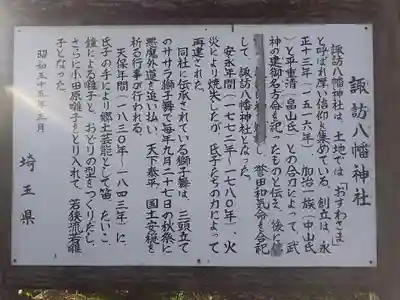 諏訪八幡神社
諏訪八幡神社は、土地では「おすわさま」
と呼ばれ厚い信仰を集めている。創立は、永
正十三年（一五一六年）、加治一族（中山氏
）と平重清（畠山氏）との合力によって、武
神の建御名方命を祀ったものと伝え、後に
誉田和気命を合祀
して、諏訪八幡神社となった。
安永年間（一七七二年～一七八〇年）、火
災により焼失したが、氏子たちの力によって
再建された。
同社に伝承されている獅子舞は、三頭立て
のササラ獅子舞で毎年九月二十七日の秋祭に
悪魔外道を追い払い、天下泰平、国土安穏を
祈る行事が行われる。
天保年間（一八三〇年～一八四三年）に、
氏子の手により郷土芸能として笛、たいこ、
鐘による囃子と、おどりの型をつくりだし、
さらに小田原囃子をとり入れて、若狭流若囃
子となった。
昭和五十五年三月
埼玉県